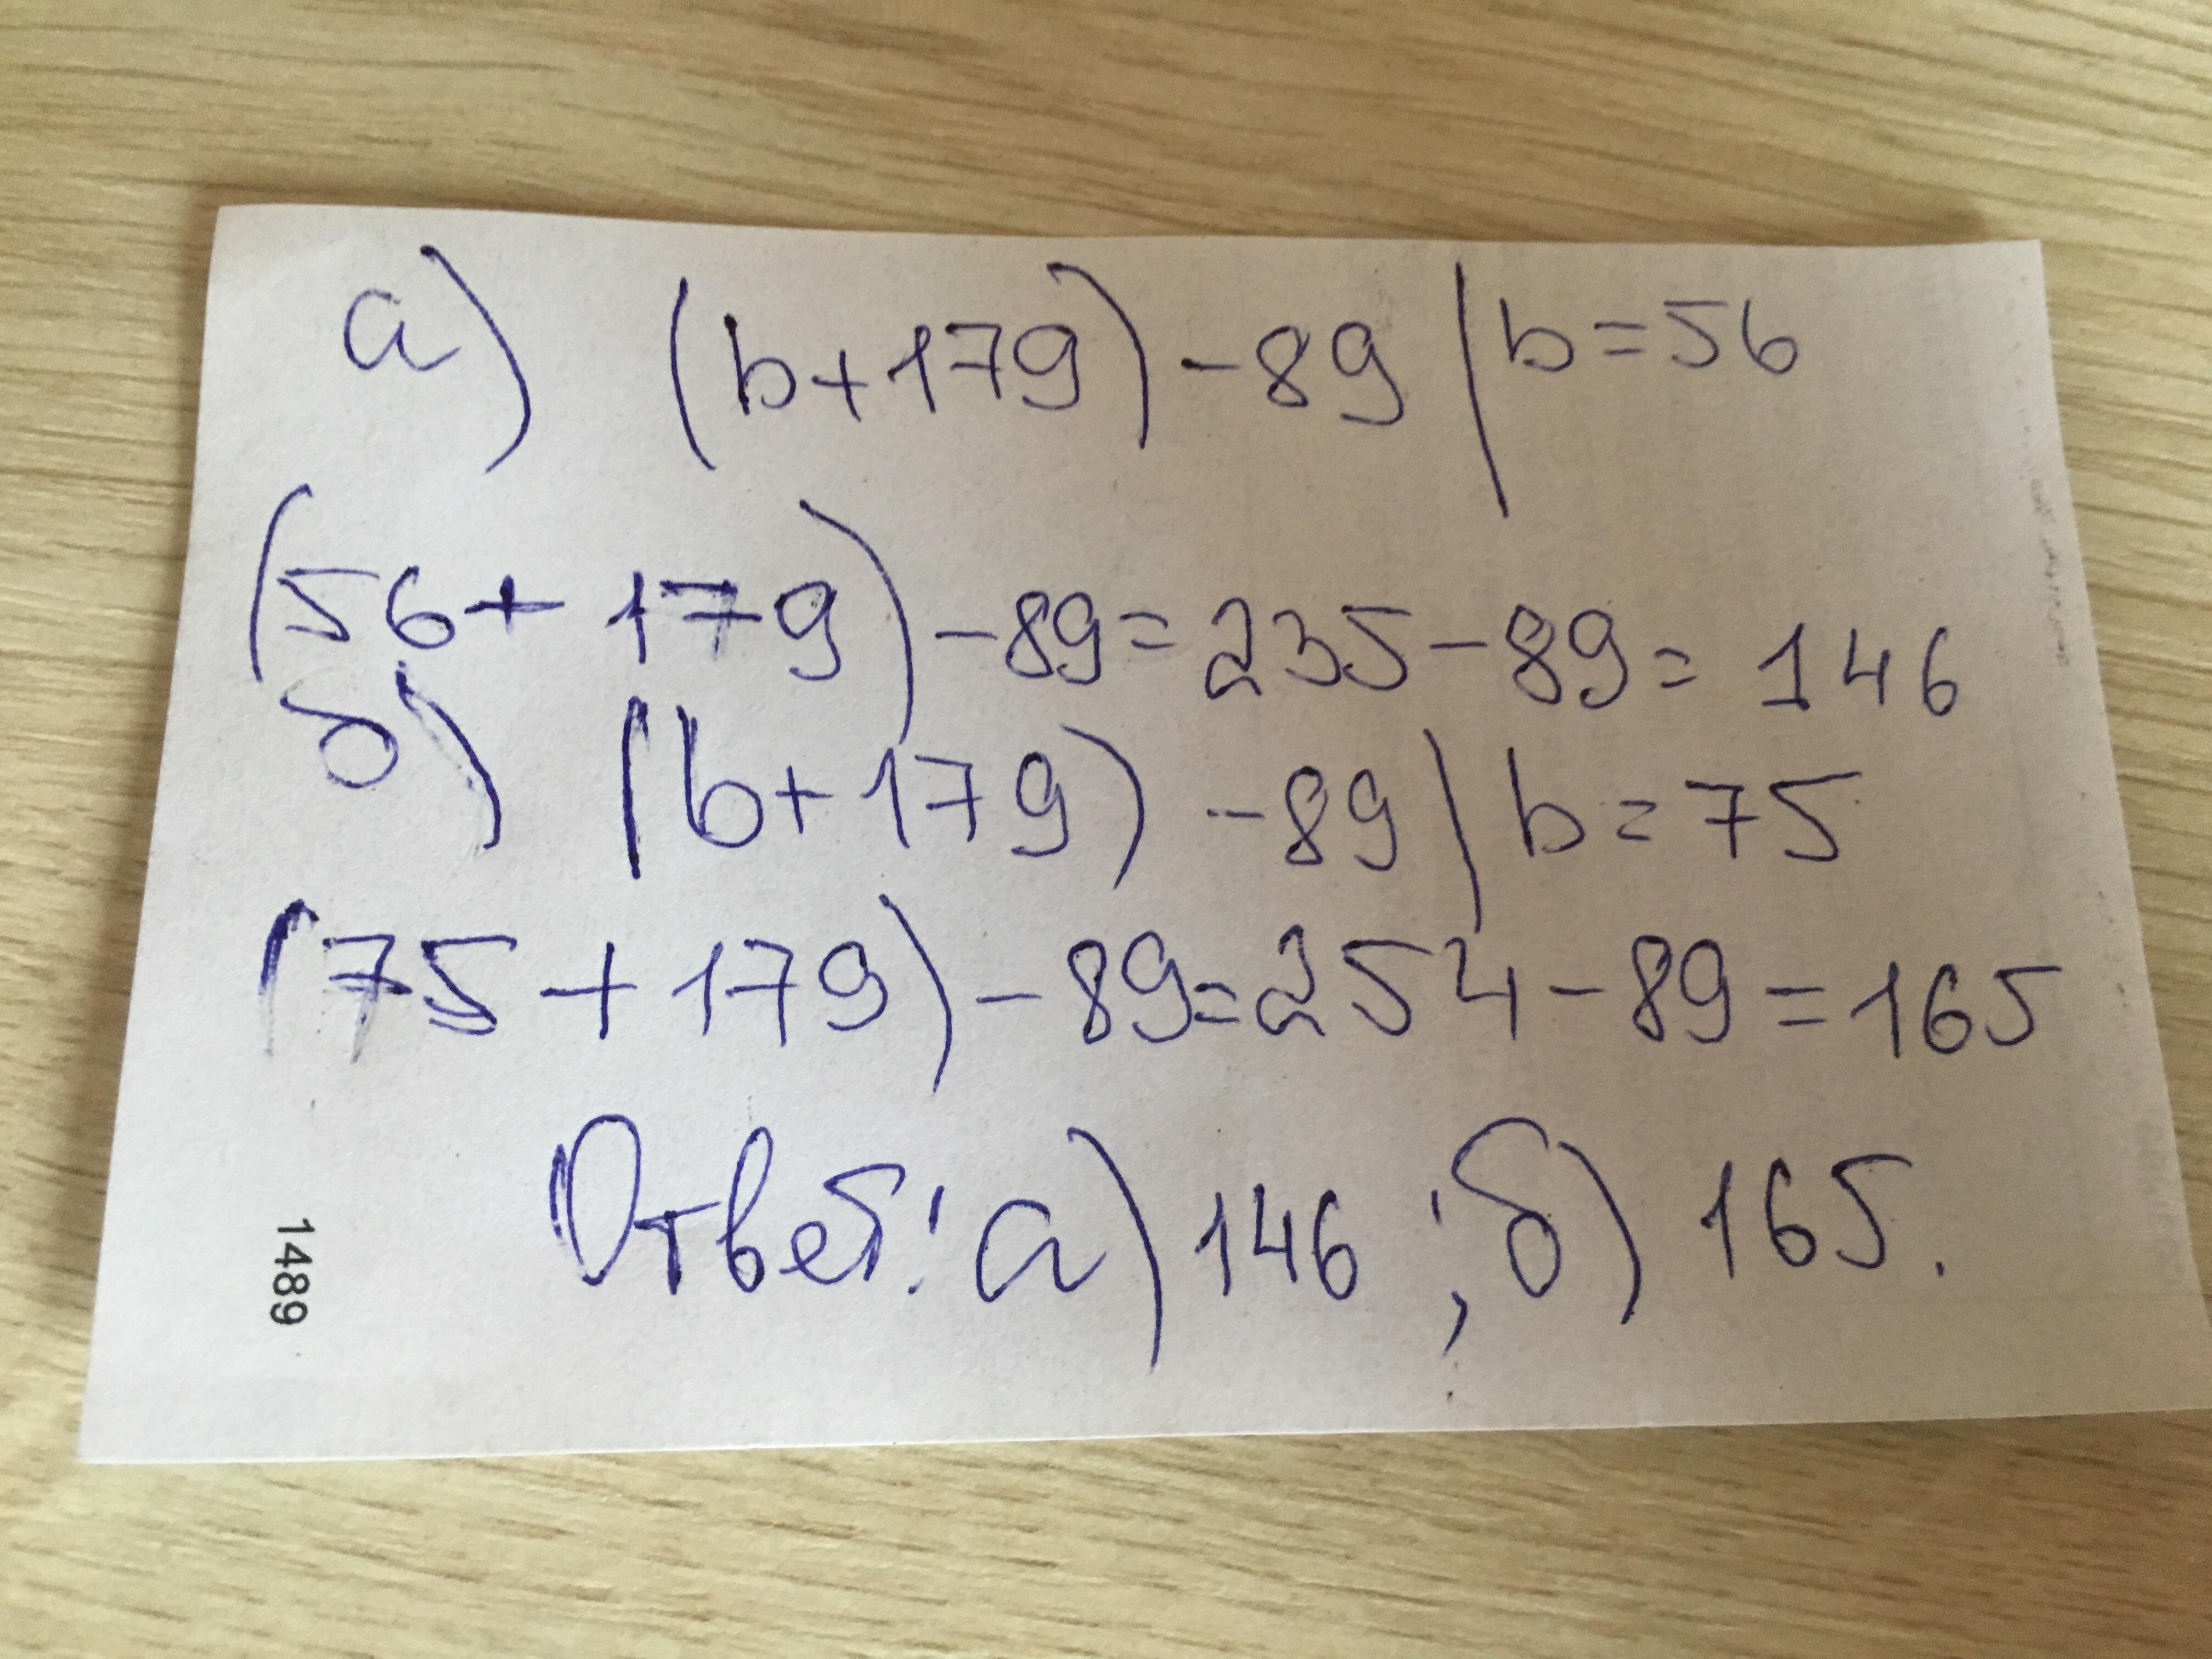 а) (b+179)-89 | b=56
(56+179)-89=235-89=146
б) (b+179)-89 | b=75
(75+179)-89=254-89=165
Ответ: а) 146 ; б) 165.
1489